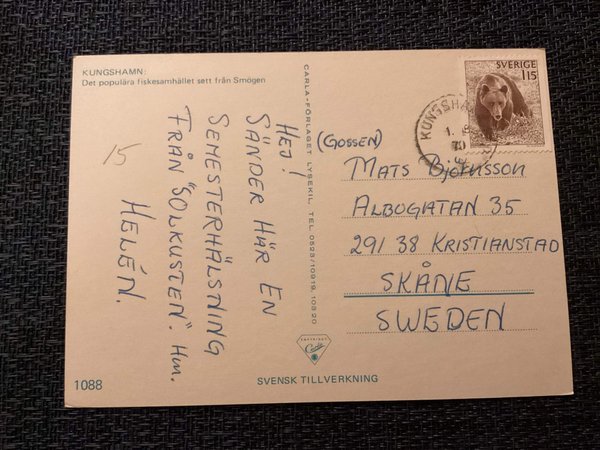 KUNGSHAMN:
Det populära fiskesamhället sett från Smögen
15
HEJ!
SÄNDER HÄR EN
SEMESTERHÄLSNING
FRÅN "SOLKUSTEN". Hm.
HELÉN.
1088
CARLA-FÖRLAGET LYSEKIL. TEL. 0523/10919, 10920
COPYRIGHT
Carla
SVENSK TILLVERKNING
SVERIGE
115
KUNGSHAMN
(GOSSEN)
MATS BJÖRNSSON
ALBOGATAN 35
291 38 KRISTIANSTAD
SKÅNE
SWEDEN